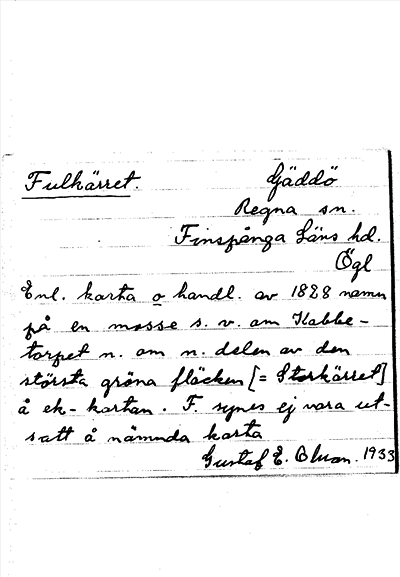 Fulkärret. Gäddö
Regna sn.
Finspånga Läns hd.
Ögl
Enl. karta o handl. av 1828 namn
på en mosse s. v. om Klabbe-
torpet n. om n. delen av den
största gröna fläcken [= Storkärret]
å ek-kartan. F. synes ej vara ut-
satt å nämnda karta
Gustaf E. 1933